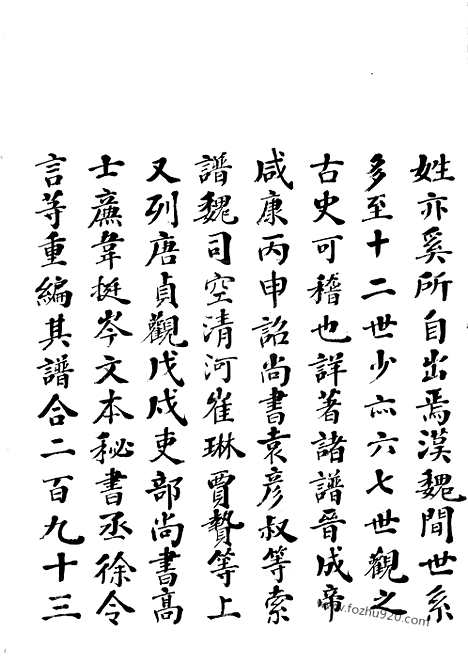 姓亦奚所自出焉漢魏間世系
多至十二世少亦六七世觀之
古史可稽也詳著諸譜晉成帝
咸康丙申詔尚書袁彦叔等索
譜魏司空清河崔琳賈贄等上
又列唐貞觀戊戍吏部尚書高
士廉韋挺岑文本秘書丞徐令
言等重編其譜合二百九十三
www.fozhu920.com